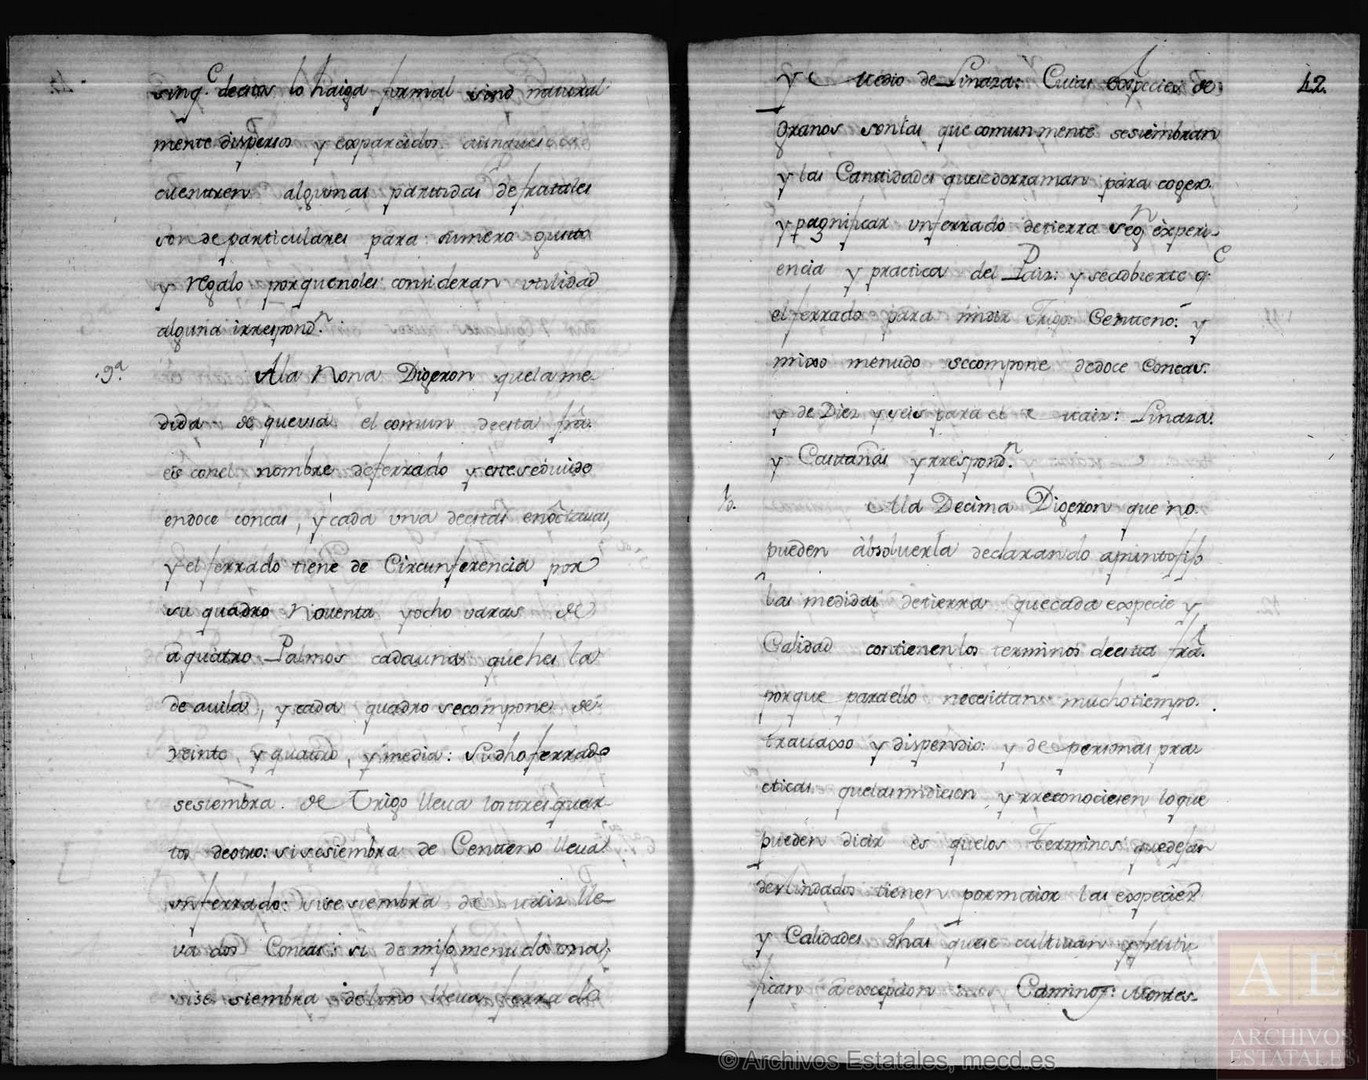 sinq.e decttos lo haiga formal sino natural
mente disperssos y exparcidos aunque se
cuentren algunas partidas de frutales
son de particulares para su mero gusto
y regalo porque no les consideran utilidad
alguna irrespond.n
9.a A la Nona Digeron que la me-
dida de que usa el comun de esta fra.
es con el nombre de ferrado y este se divide
en doce concas, y cada una de estas en octavas,
y el ferrado tiene de Circunferencia por
su quadro Noventa y ocho varas de
a quatro Palmos cada una que hes la
de auila, y cada quadro se compone de
veinte y quatro, y media: Su dho ferrado
se siembra de Trigo lleua los tres quar-
tos de otro: si se siembra de Centteno lleua
un ferrado: si se siembra de maiz lle-
va dos Concas: si de mijo menudo una;
si se siembra de lino lleua ferrado
42
y medio de Linaza: Cuias expecies de
granos son las que comunmente se siembran
y las Canttidades que se derraman para coger
y pagnificar un ferrado de tierra seg.n experi-
encia y practica del Pais: y se adbierte q.e
el ferrado para medir Trigo: Centeno: y
mixo menudo se compone de doce Concas.
y de Diez y seis para el maiz: Linaza.
y Casttañas y rrespond.n
10. A la Decima Digeron que no
pueden absoluerla declarando a punto fijo
las medidas de tierra que cada expecie y
Calidad contienen los terminos de esta fra.
porque para ello necesittan mucho tiempo.
trauaxo y dispendio: y de personas pra-
cticas que las midiesen y rreconociesen lo que
pueden dicir es que los Terminos que dejan
deslindados tienen por maior las expecies
y Calidades dhas que se cultiuan y frutti-
fican a excepcion de los Caminos: Montes